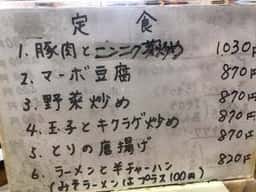 定食
1. 豚肉とニンニク菜炒め 1,030円
2. マーボ豆腐 870円
3. 野菜炒め 870円
4. 玉子とキクラゲ炒め 870円
5. とりの唐揚げ 870円
6. ラーメンと半チャーハン 820円
(みそラーメンはプラス100円)